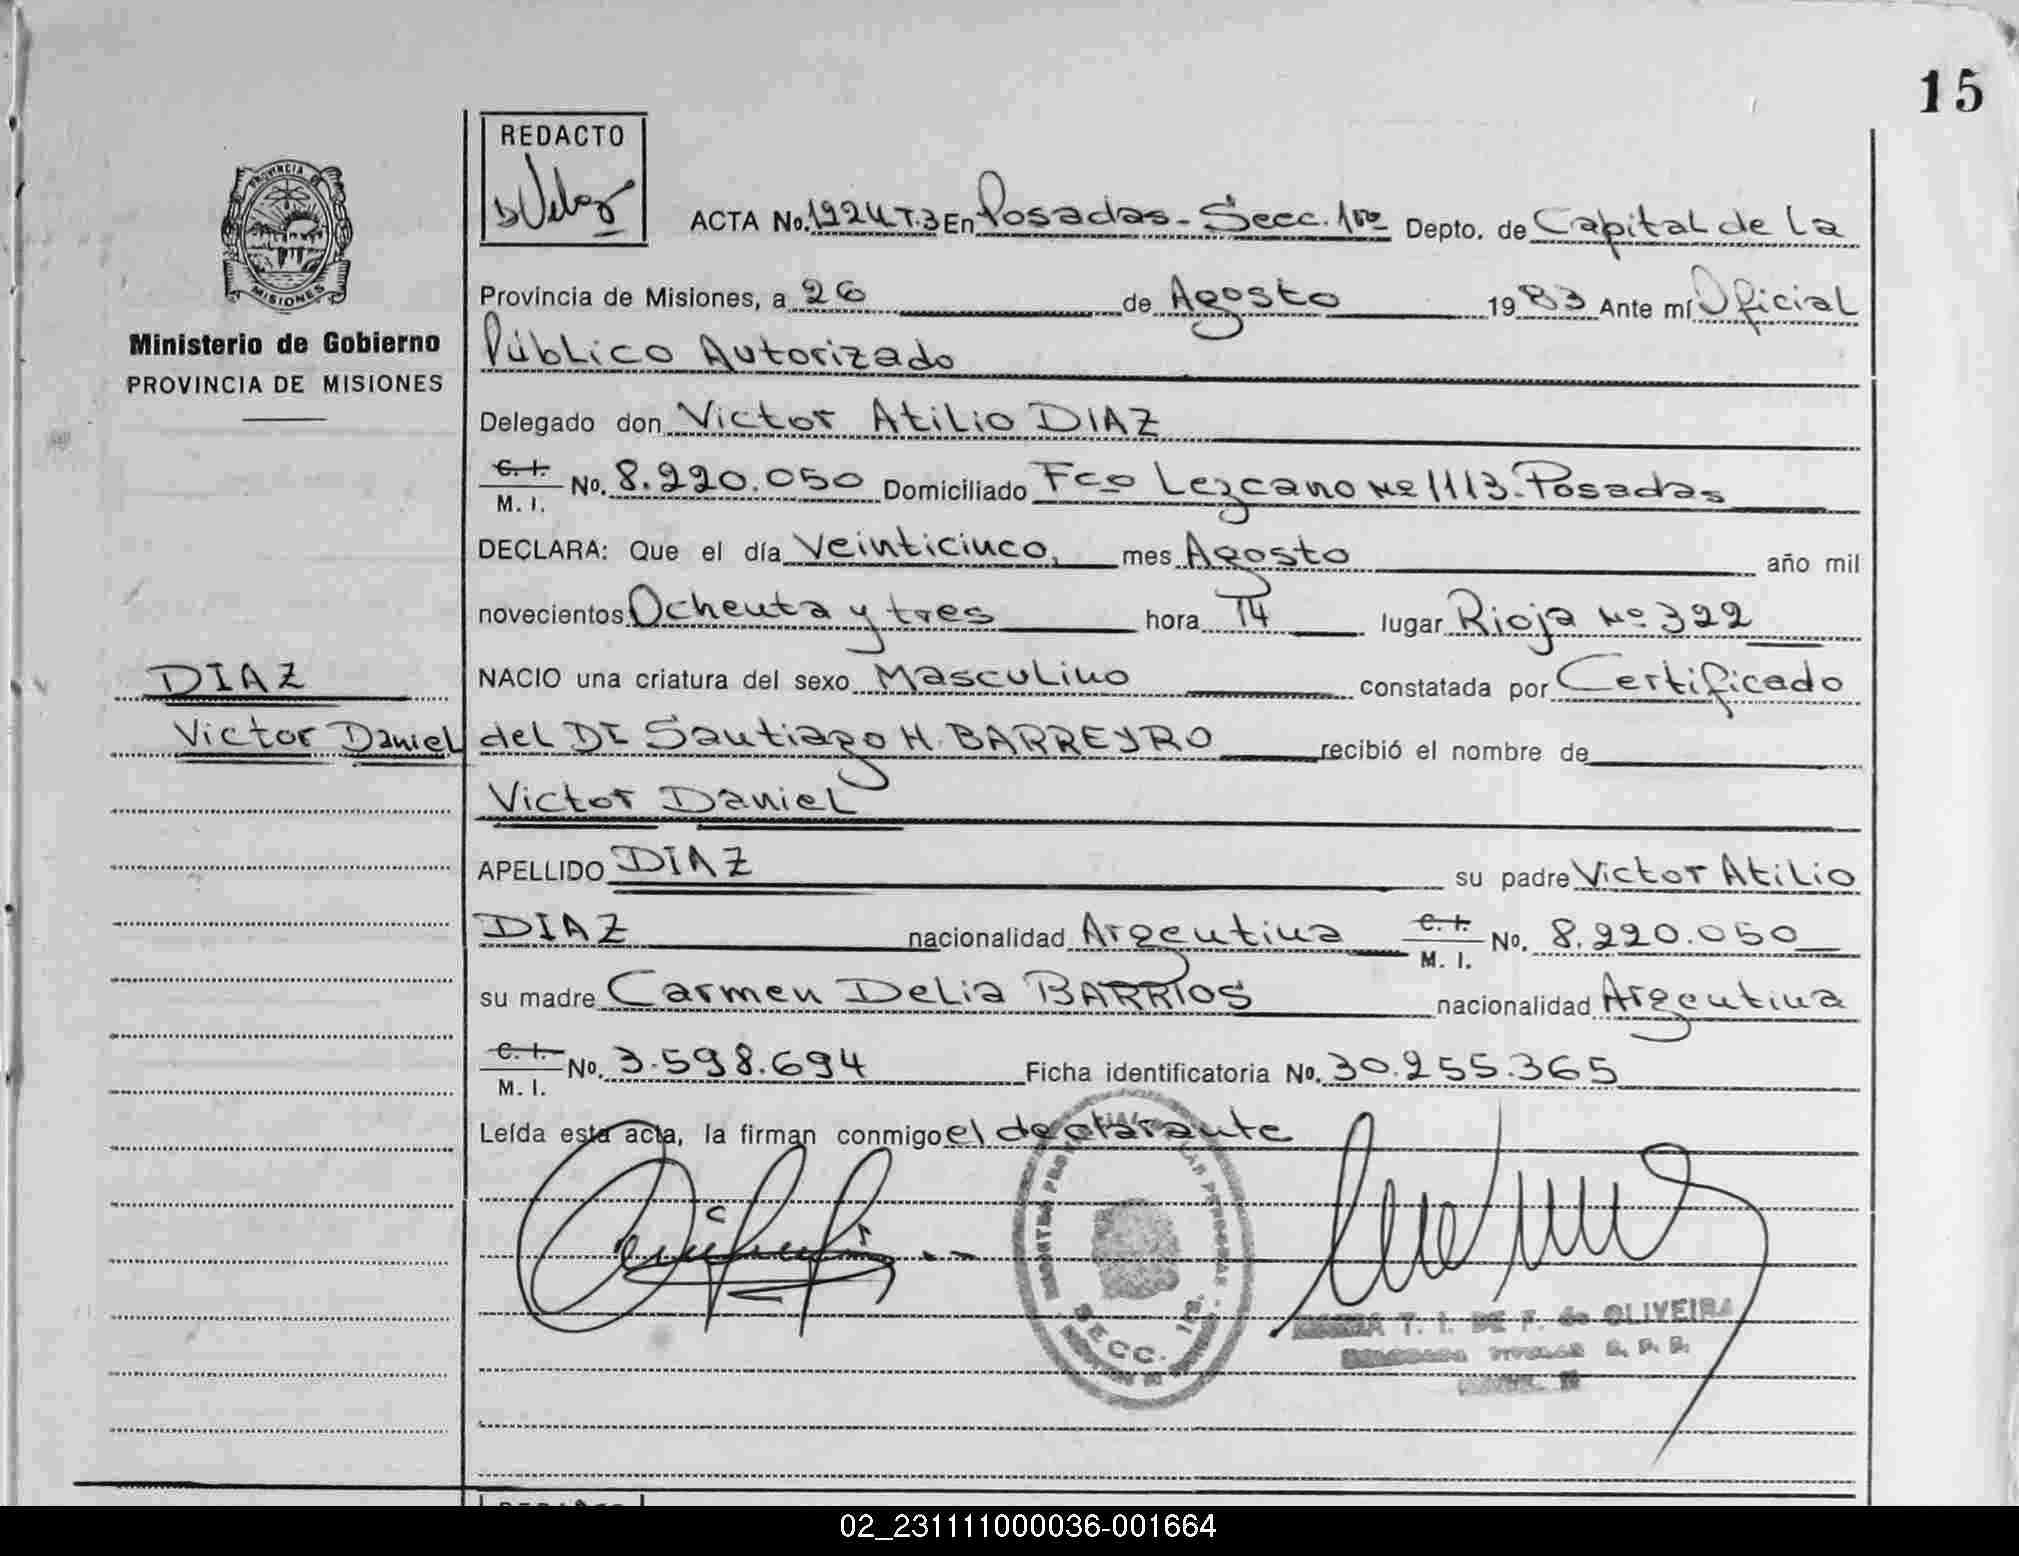 15
REDACTO
PROVINCIA DE
MISIONES
Ministerio de Gobierno
PROVINCIA DE MISIONES
ACTA No. 1924 T.3 En Posadas - Secc. 1ra Depto. de Capital de la
Provincia de Misiones, a 26 de Agosto 1983 Ante mí Oficial
Público Autorizado
Delegado don Victor Atilio DIAZ
C. I.
M. I. No. 8.220.050 Domiciliado Fco Lezcano Nº 1113 - Posadas
DECLARA: Que el día Veinticinco, mes Agosto año mil
novecientos Ochenta y tres hora 14 lugar Rioja Nº 322
DIAZ
NACIO una criatura del sexo Masculino constatada por Certificado
Victor Daniel
del Dr Santiago H. BARREYRO recibió el nombre de
Victor Daniel
APELLIDO DIAZ su padre Victor Atilio
DIAZ nacionalidad Argentina C. I.
M. I. No. 8.220.050
su madre Carmen Delia BARRIOS nacionalidad Argentina
C. I.
M. I. No. 3.598.694 Ficha identificatoria No. 30.255.365
Leída esta acta, la firman conmigo el declarante
SECC. 1ra.
T. I. DE F. de OLIVEIRA
02_231111000036-001664